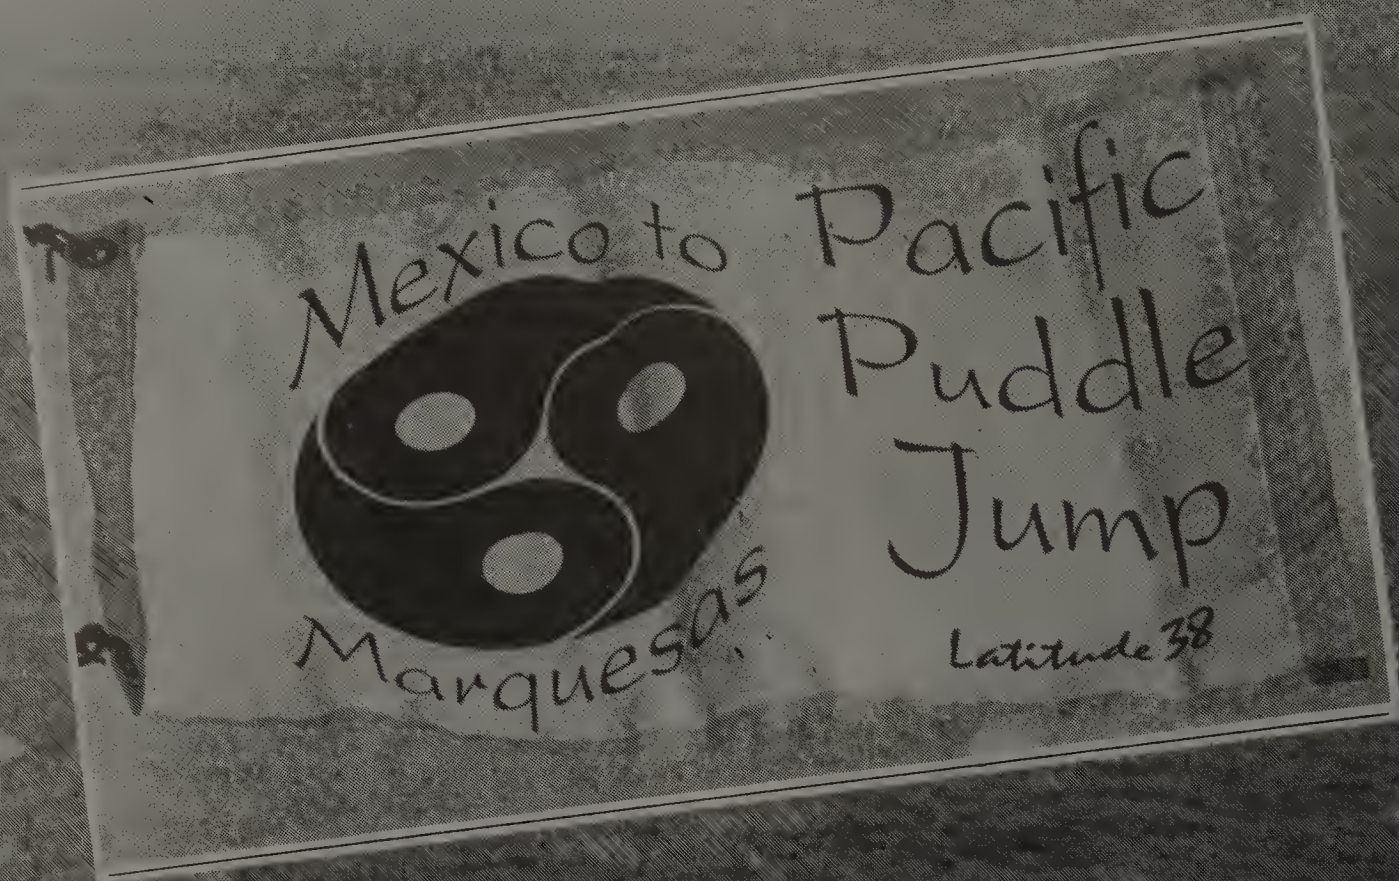 Mexico to
Marquesas
Pacific
Puddle
Jump
Latitude 38